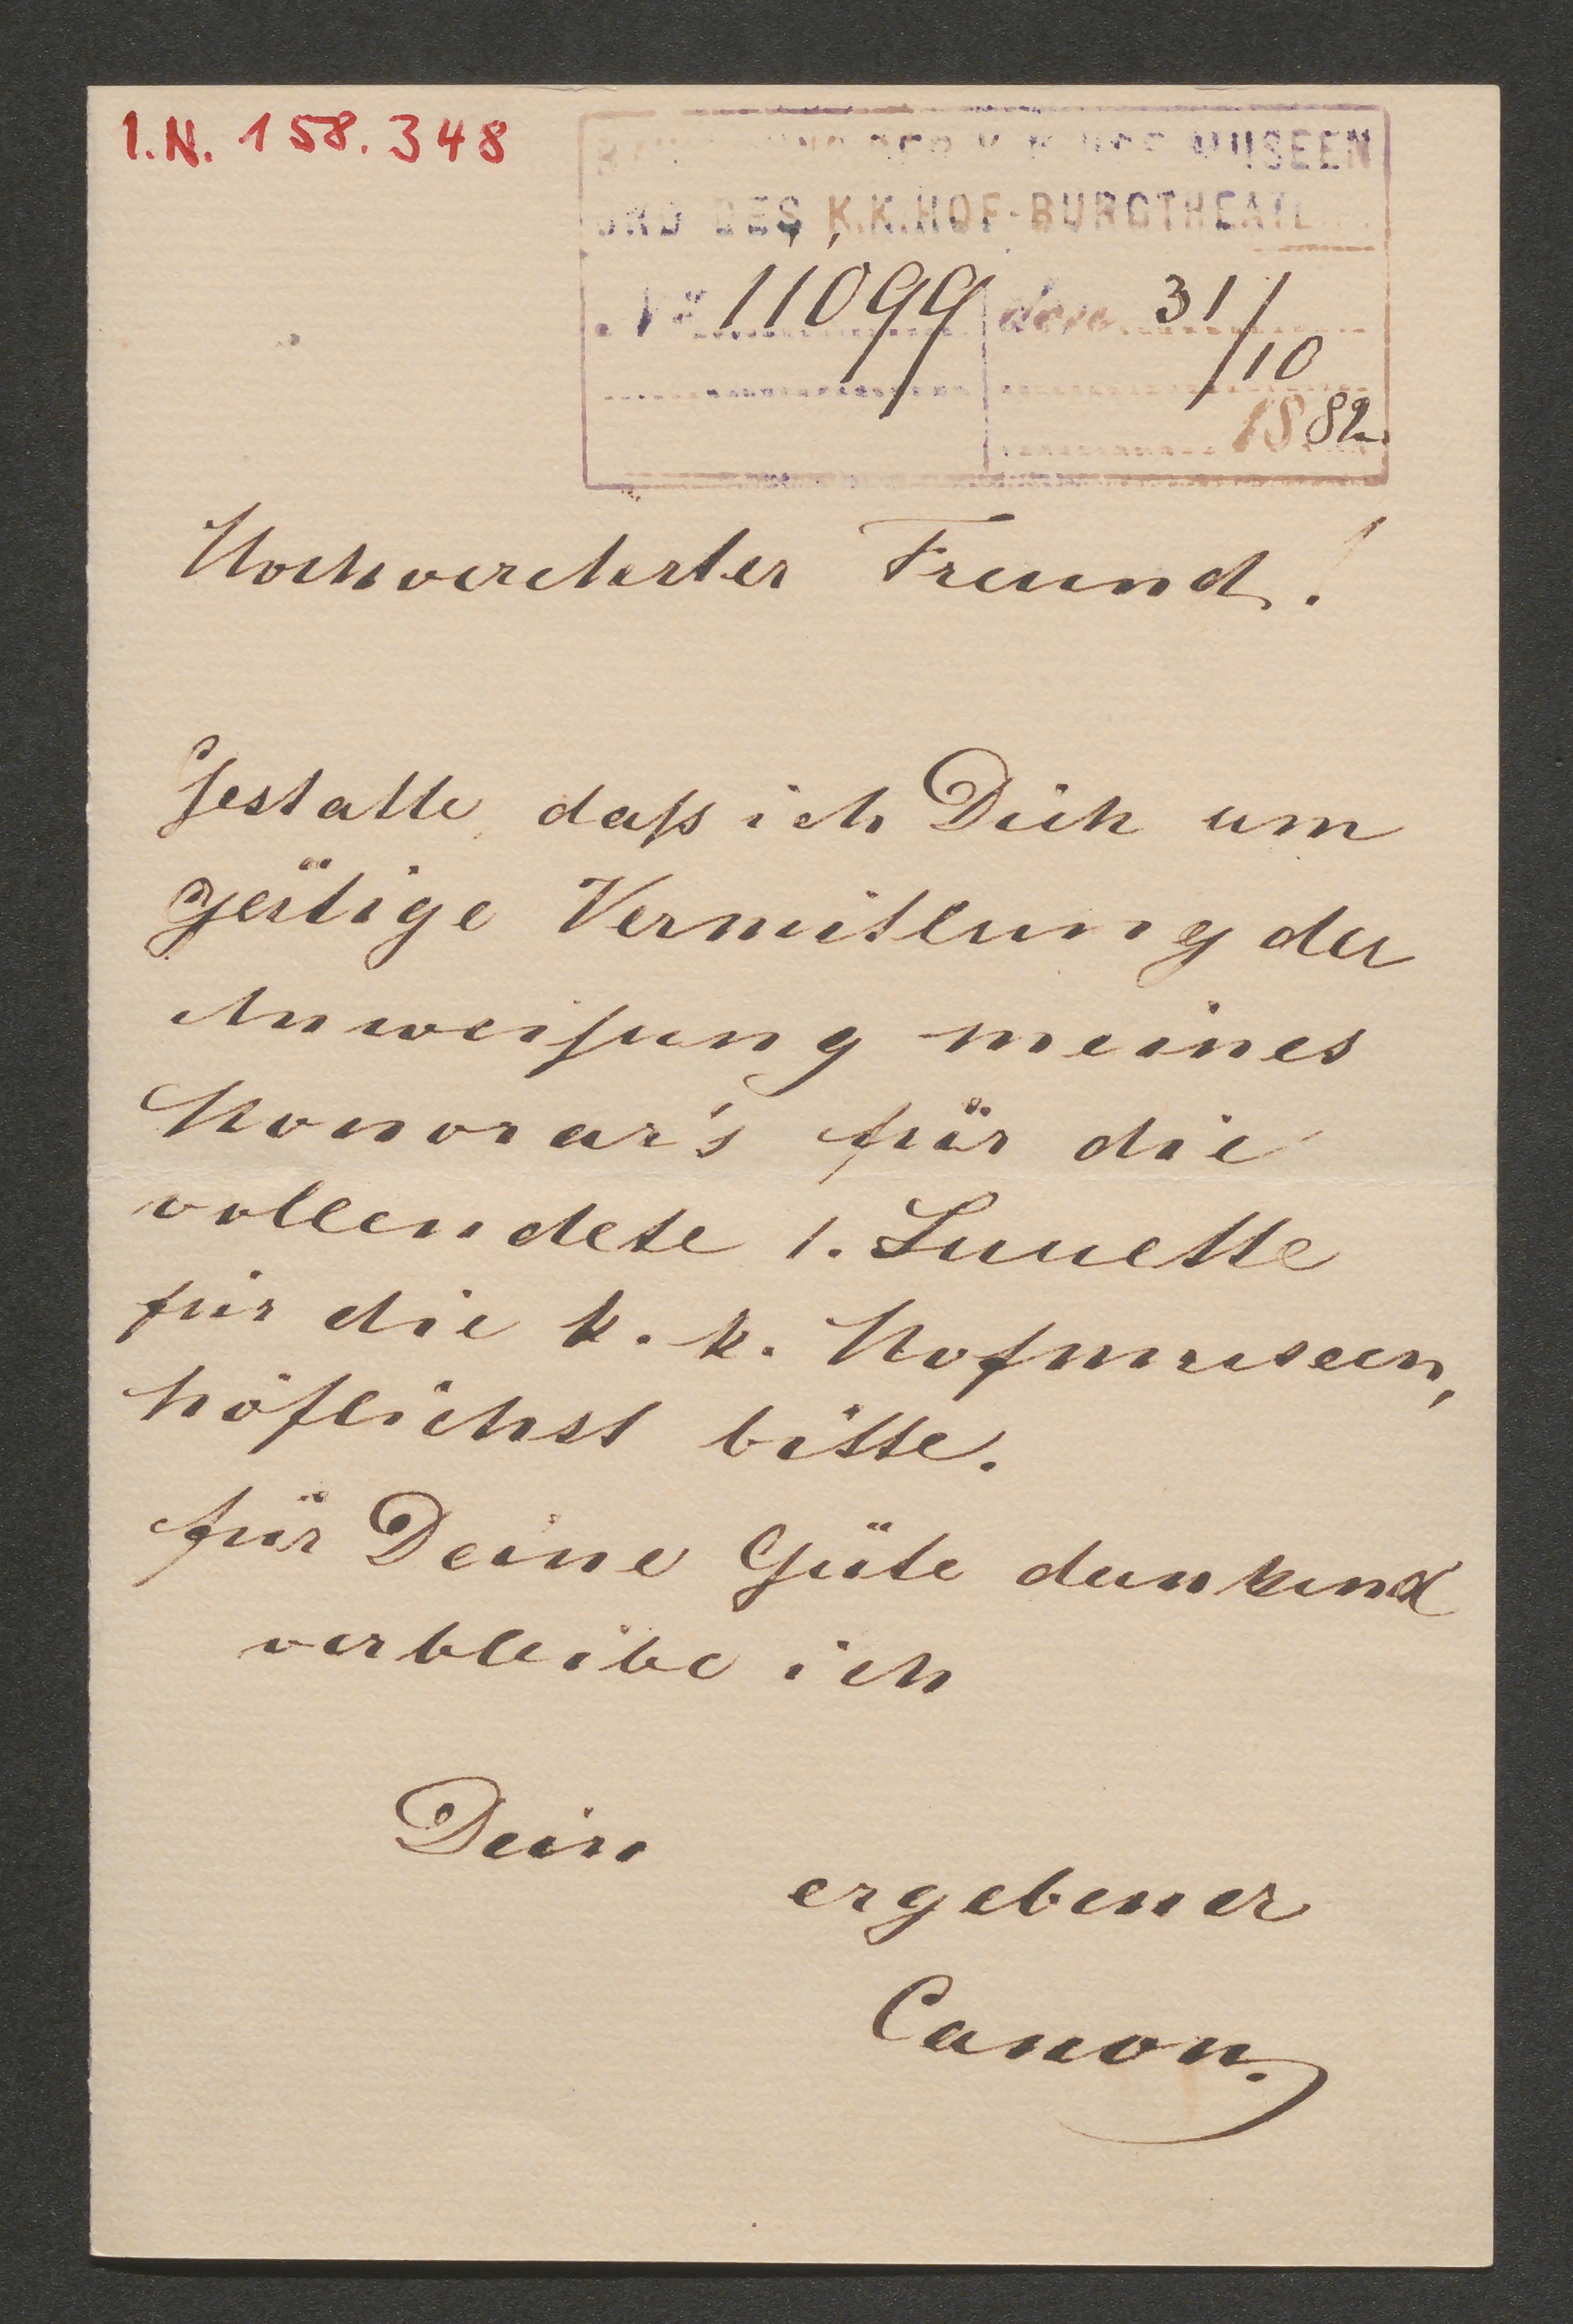 I.N. 158.348
MUSEEN
UND DES K.K. HOF-BURGTHEATE
No 11099 dem 31/
10
1882
Hochverehrter Freund!
Gestatte, daß ich Dich um
gütige Vermittlung der
Anweisung meines
Honorar's für die
vollendete 1. Lunette
für die k. k. Hofmuseen,
höflichst bitte.
für Deine Güte dankend
verbleibe ich
Dein
ergebener
Canon.